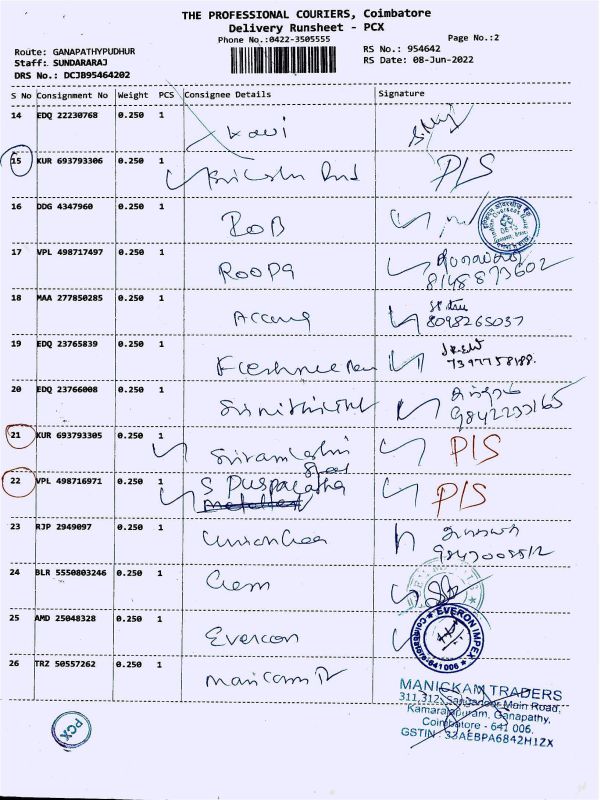 THE PROFESSIONAL COURIERS, Coimbatore
Delivery Runsheet - PCX
Phone No.:0422-3505555
Page No.:2
Route: GANAPATHYPUDHUR
Staff: SUNDARARAJ
DRS No.: DCJB95464202
RS No.: 954642
RS Date: 08-Jun-2022
S No Consignment No Weight PCS Consignee Details Signature
14 EDQ 22230768 0.250 1 Kavi
15 KUR 693793306 0.250 1 P/S
16 DDG 4347960 0.250 1 ROB
17 VPL 498717497 0.250 1 ROOPA
8148873602
18 MAA 277850285 0.250 1
8098265037
19 EDQ 23765839 0.250 1
7397758188.
20 EDQ 23766008 0.250 1
9842233165
21 KUR 693793305 0.250 1 P/S
22 VPL 498716971 0.250 1 S Puspalatha P/S
23 RJP 2949097 0.250 1
24 BLR 5550803246 0.250 1 Gem
25 AMD 25048328 0.250 1 Evercon
EVERON IMPEX
Coimbatore-641 006
26 TRZ 50557262 0.250 1
MANICKAM TRADERS
311,312, Main Road,
Kamarajapuram, Ganapathy,
Coimbatore - 641 006.
GSTIN : 33AEBPA6842H1ZX
PCX